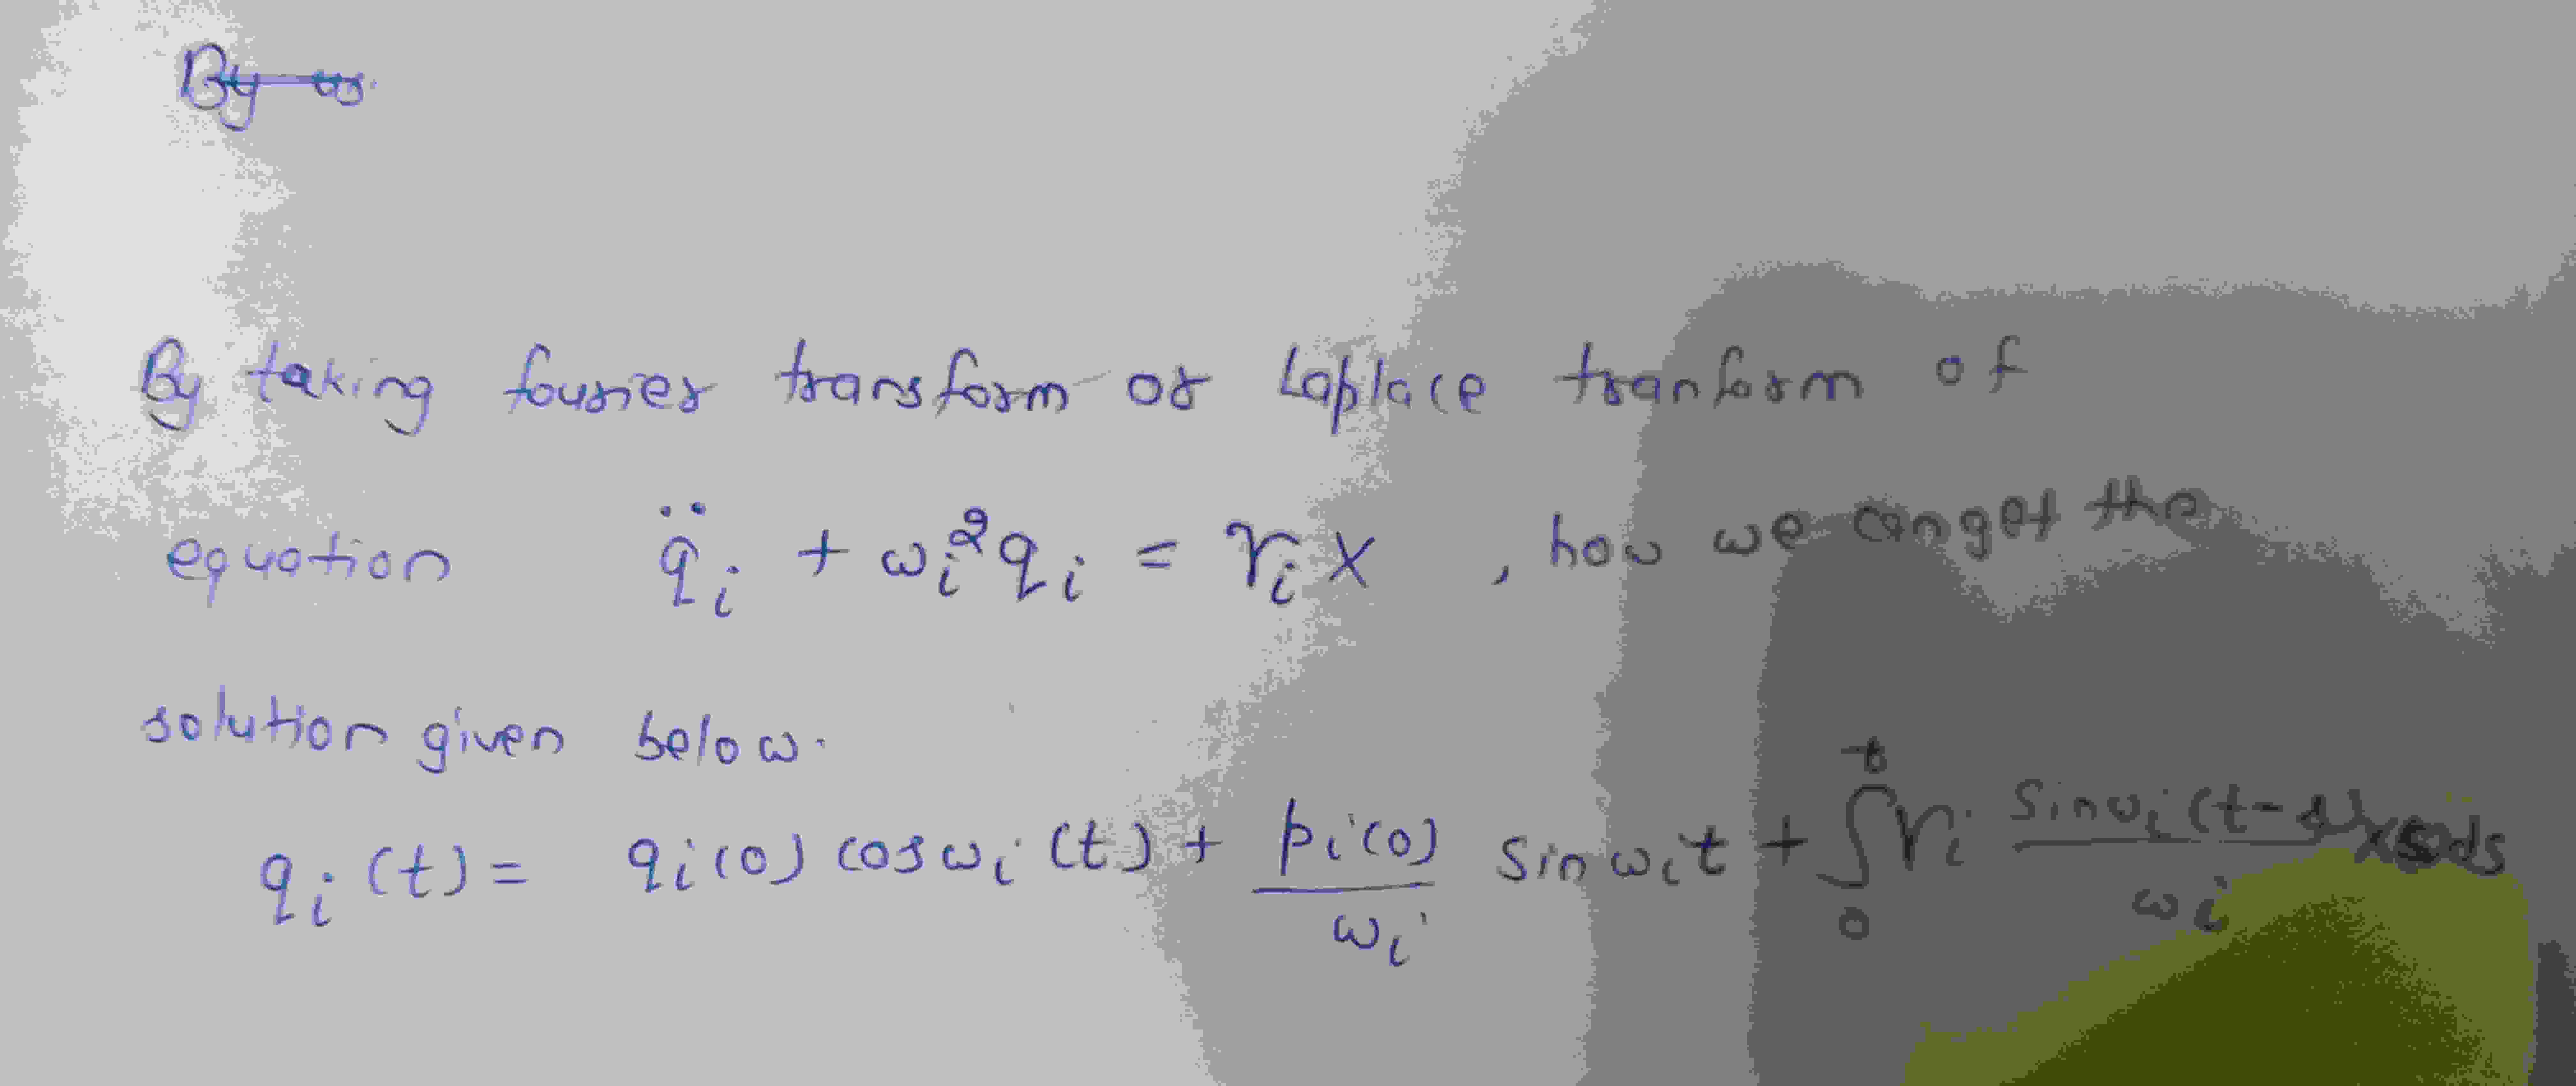 By
By taking fourier transform or Laplace tranform of
equation q̈ᵢ + ωᵢ²qᵢ = γᵢx , how we can get the
solution given below.
qᵢ(t) = qᵢ(0) cos ωᵢ(t) + pᵢ(0)/ωᵢ sin ωᵢt + ∫₀ᵗ γᵢ sin ωᵢ(t-s)/ωᵢ x(s)ds